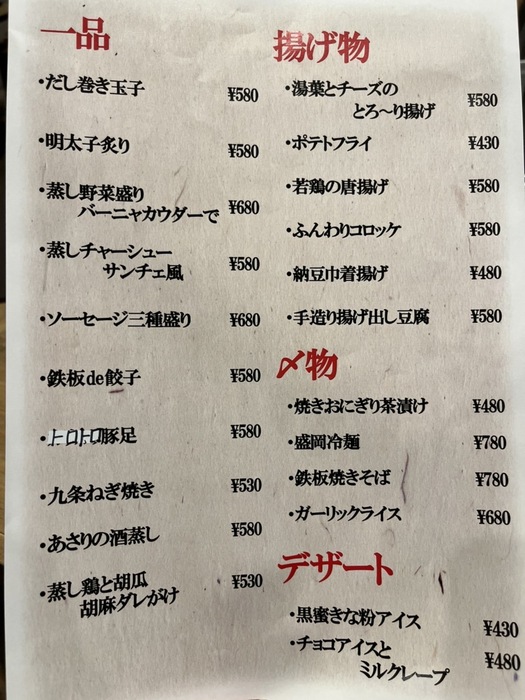 一品
・だし巻き玉子 ¥580
・明太子炙り ¥580
・蒸し野菜盛り
バーニャカウダーで ¥680
・蒸しチャーシュー
サンチェ風 ¥580
・ソーセージ三種盛り ¥680
・鉄板de餃子 ¥580
・トロトロ豚足 ¥580
・九条ねぎ焼き ¥530
・あさりの酒蒸し ¥580
・蒸し鶏と胡瓜 ¥530
胡麻ダレがけ
揚げ物
・湯葉とチーズの
とろ〜り揚げ ¥580
・ポテトフライ ¥430
・若鶏の唐揚げ ¥580
・ふんわりコロッケ ¥580
・納豆巾着揚げ ¥480
・手造り揚げ出し豆腐 ¥580
〆物
・焼きおにぎり茶漬け ¥480
・盛岡冷麺 ¥780
・鉄板焼きそば ¥780
・ガーリックライス ¥680
デザート
・黒蜜きな粉アイス ¥430
・チョコアイスと
ミルクレープ ¥480